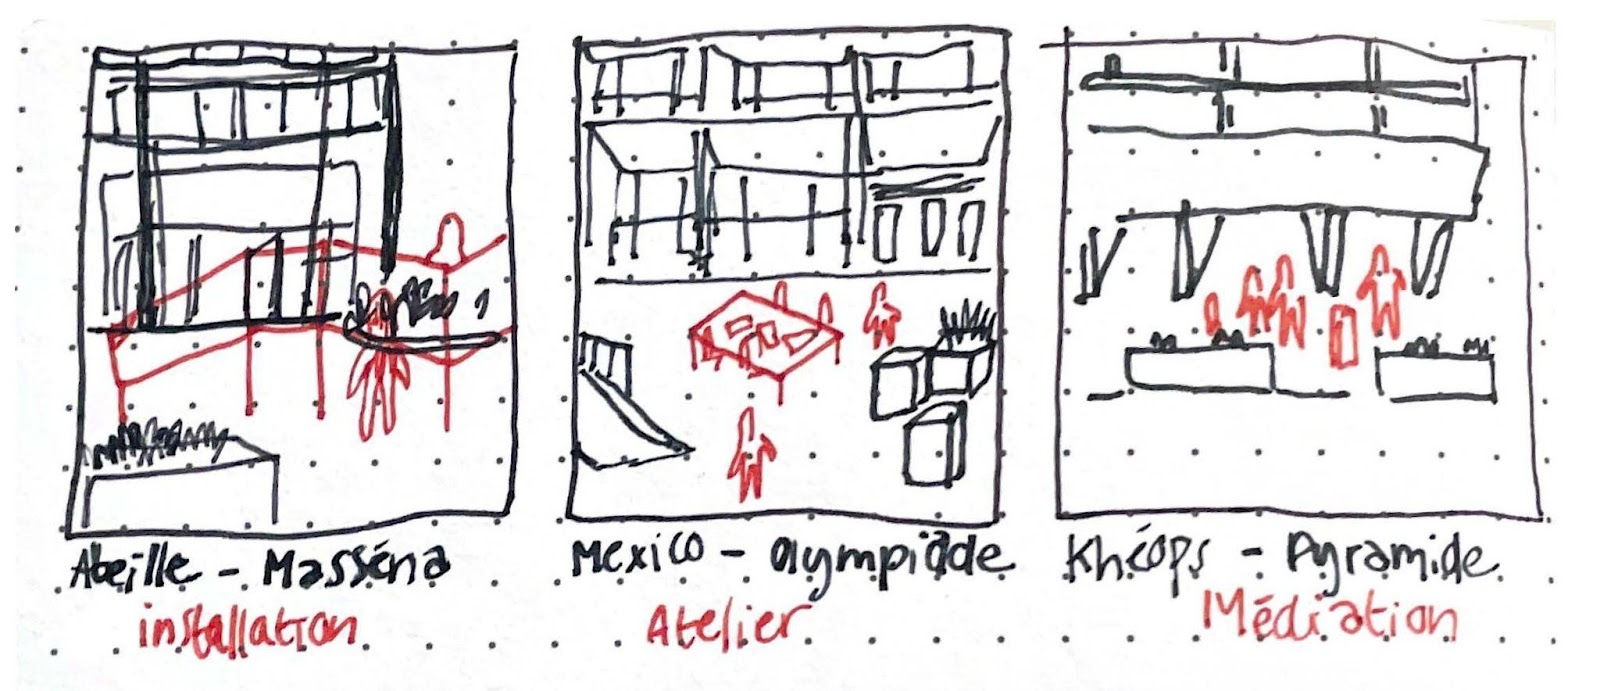 Abeille - Masséna
installation
Mexico - Olympiade
Atelier
Khéops - Pyramide
Médiation